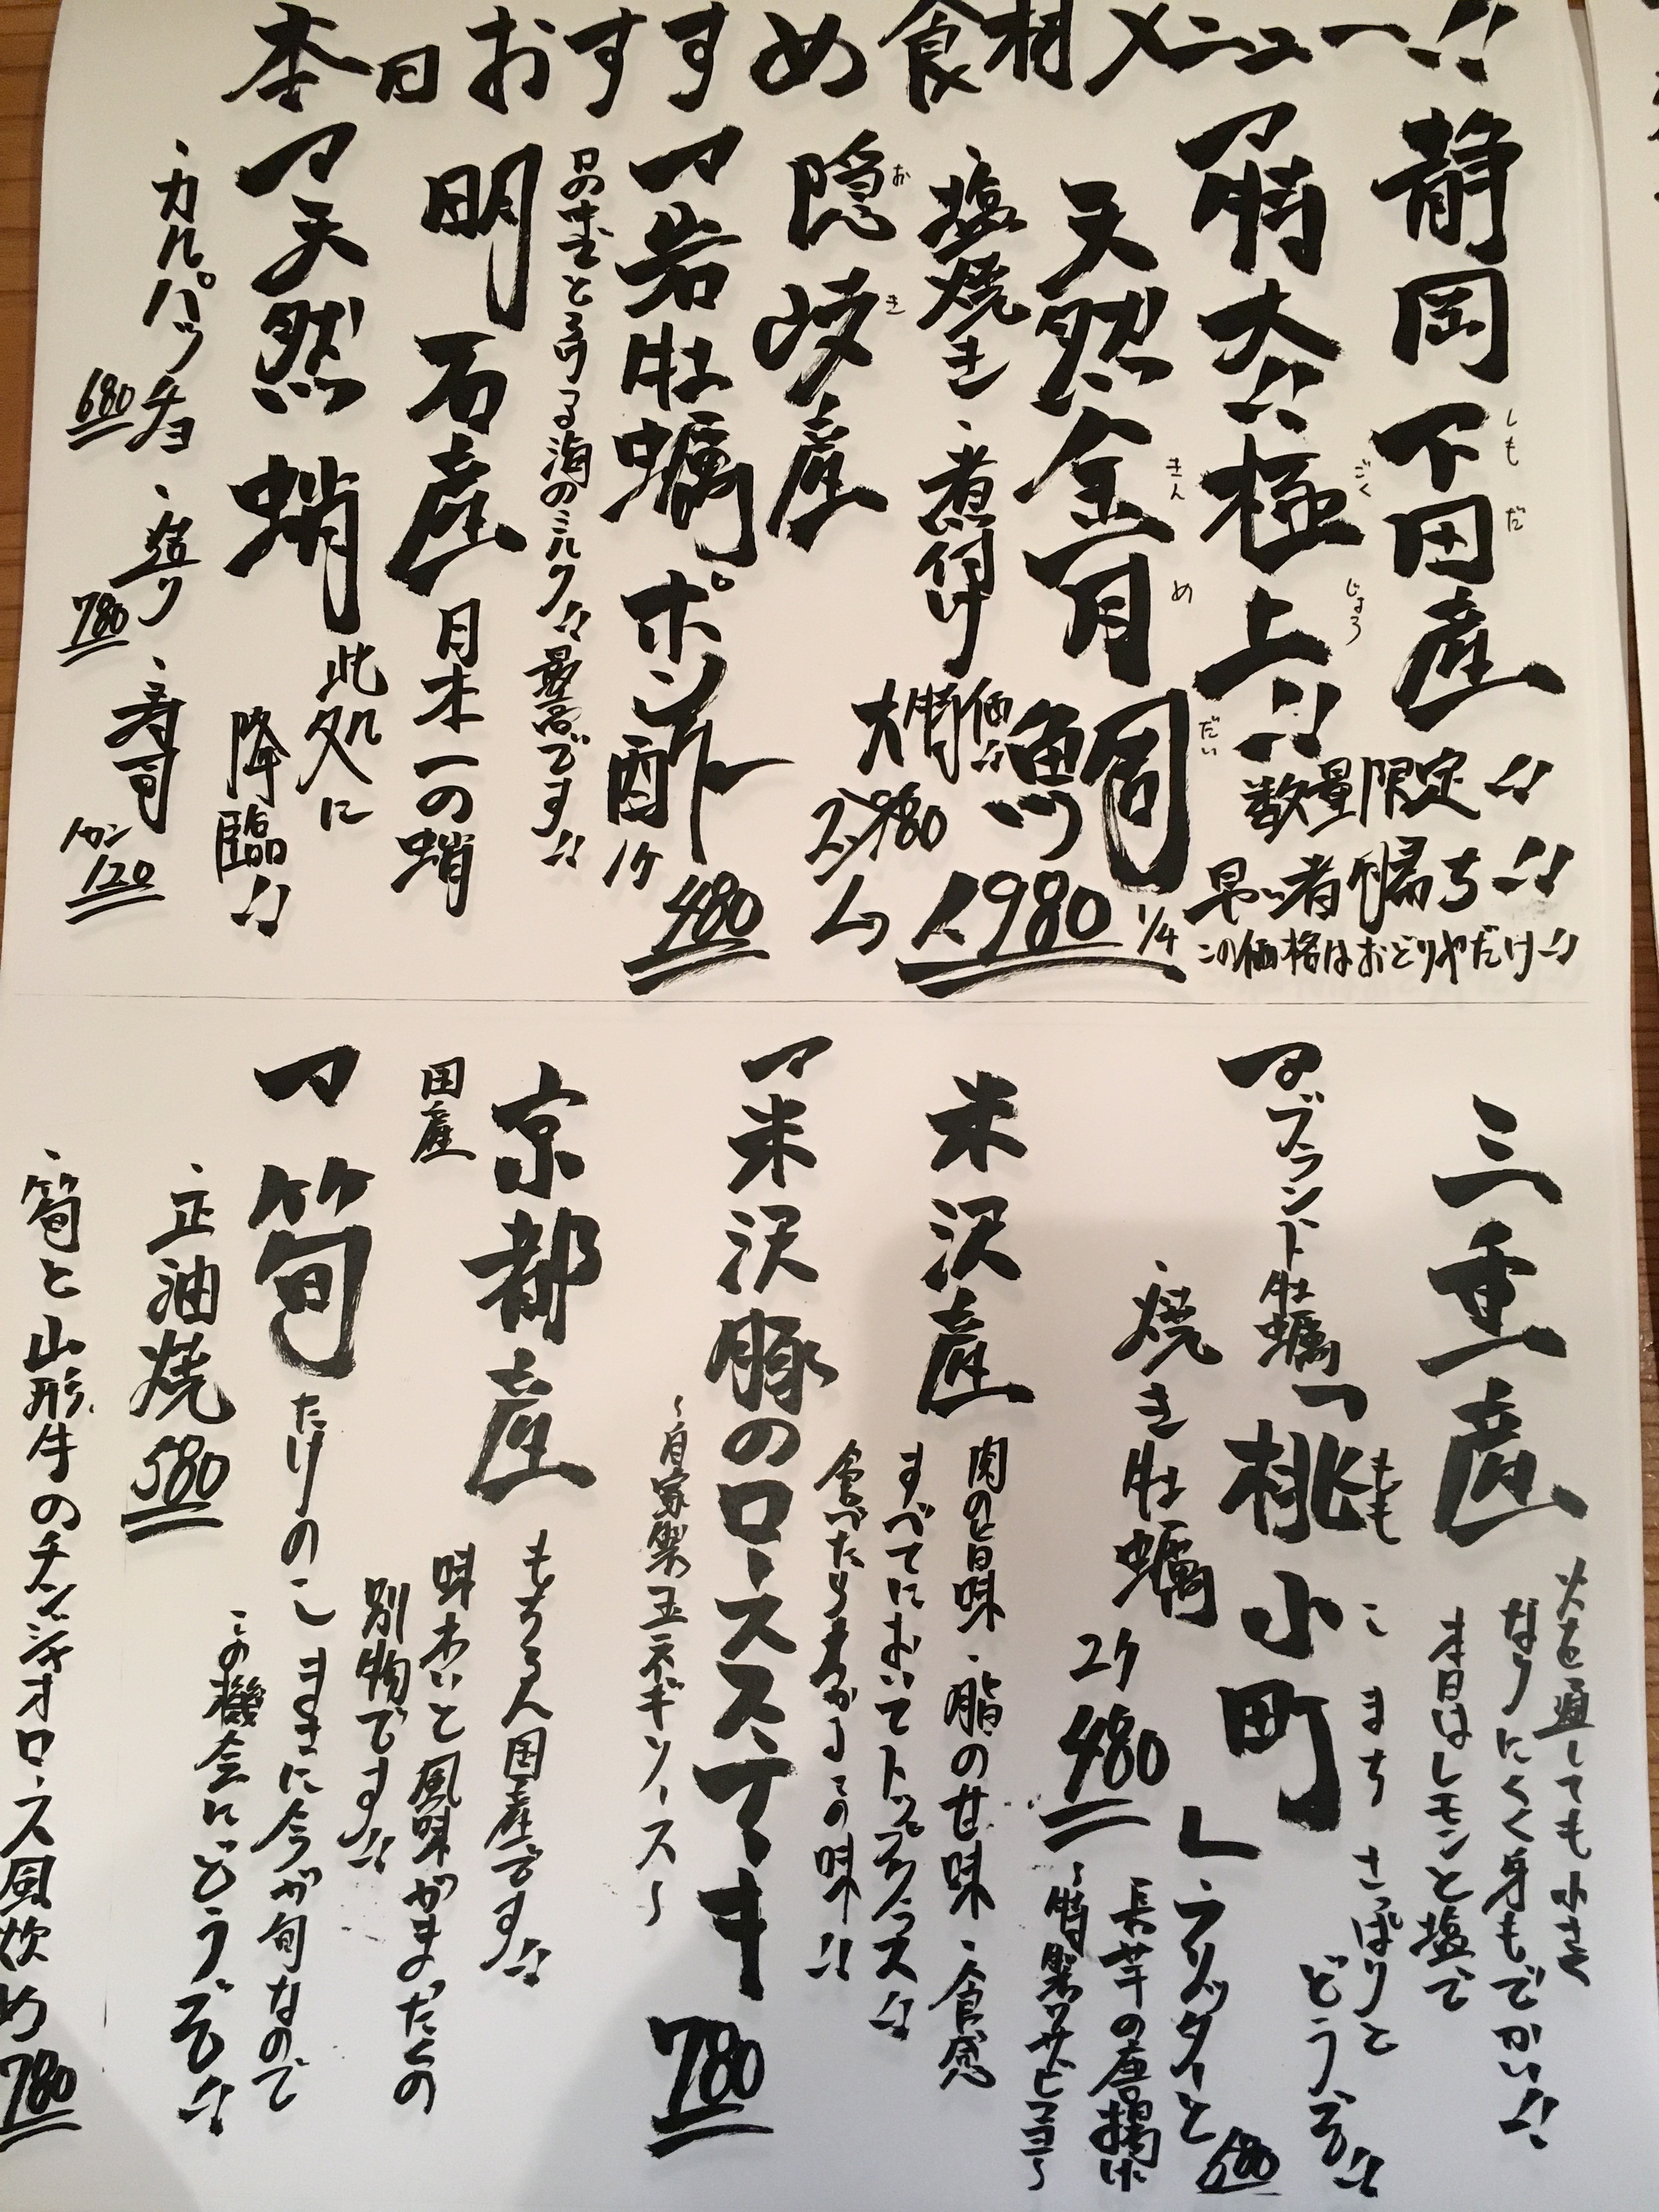 本日おすすめ食材メニュー!!
静岡下田産
しもだ
マ特大!!極上!!
ごくじょう
数量限定!!
早い者勝ち!!
この価格はおどりやだけ!!
天然金目鯛
きんめだい
1/4
1980
・塩焼き・煮付け
大特価!!
隠岐産
おき
マ岩牡蠣ポン酢
1ケ
480
口の中でとろける海のミルク!!最高です!!
明石産
日本一の蛸
マ天然蛸
此処に
降臨!!
・カルパッチョ
680
・造り
780
・寿司
1カン
120
三重産
火を通しても小さく
なりにくく身もでかい!!
本日はレモンと塩で
さっぱりと
どうぞ!!
マブランド牡蠣「桃小町」
ももこまち
・焼き牡蠣
2ケ
480
・フリッターと
長芋の唐揚げ
〜特製ワサビマヨ〜
680
米沢産
肉の旨味・脂の甘味・食感
すべてにおいてトップクラス!!
食べたらわかるこの味!!
マ米沢豚のロースステーキ
780
〜自家製玉ネギソース〜
京都産
国産
もちろん国産です!!
味わいと風味がまったくの
別物です!!
マ筍
たけのこ
まさに今が旬なので
この機会にどうぞ!!
・正油焼
580
・筍と山形牛のチンジャオロース風炒め
780